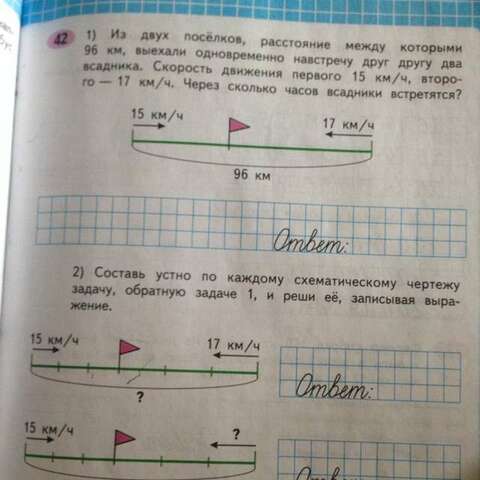 42 1) Из двух посёлков, расстояние между которыми
96 км, выехали одновременно навстречу друг другу два
всадника. Скорость движения первого 15 км/ч, второ-
го — 17 км/ч. Через сколько часов всадники встретятся?
15 км/ч 17 км/ч
96 км
Ответ:
2) Составь устно по каждому схематическому чертежу
задачу, обратную задаче 1, и реши её, записывая выра-
жение.
15 км/ч 17 км/ч
?
Ответ:
15 км/ч ?